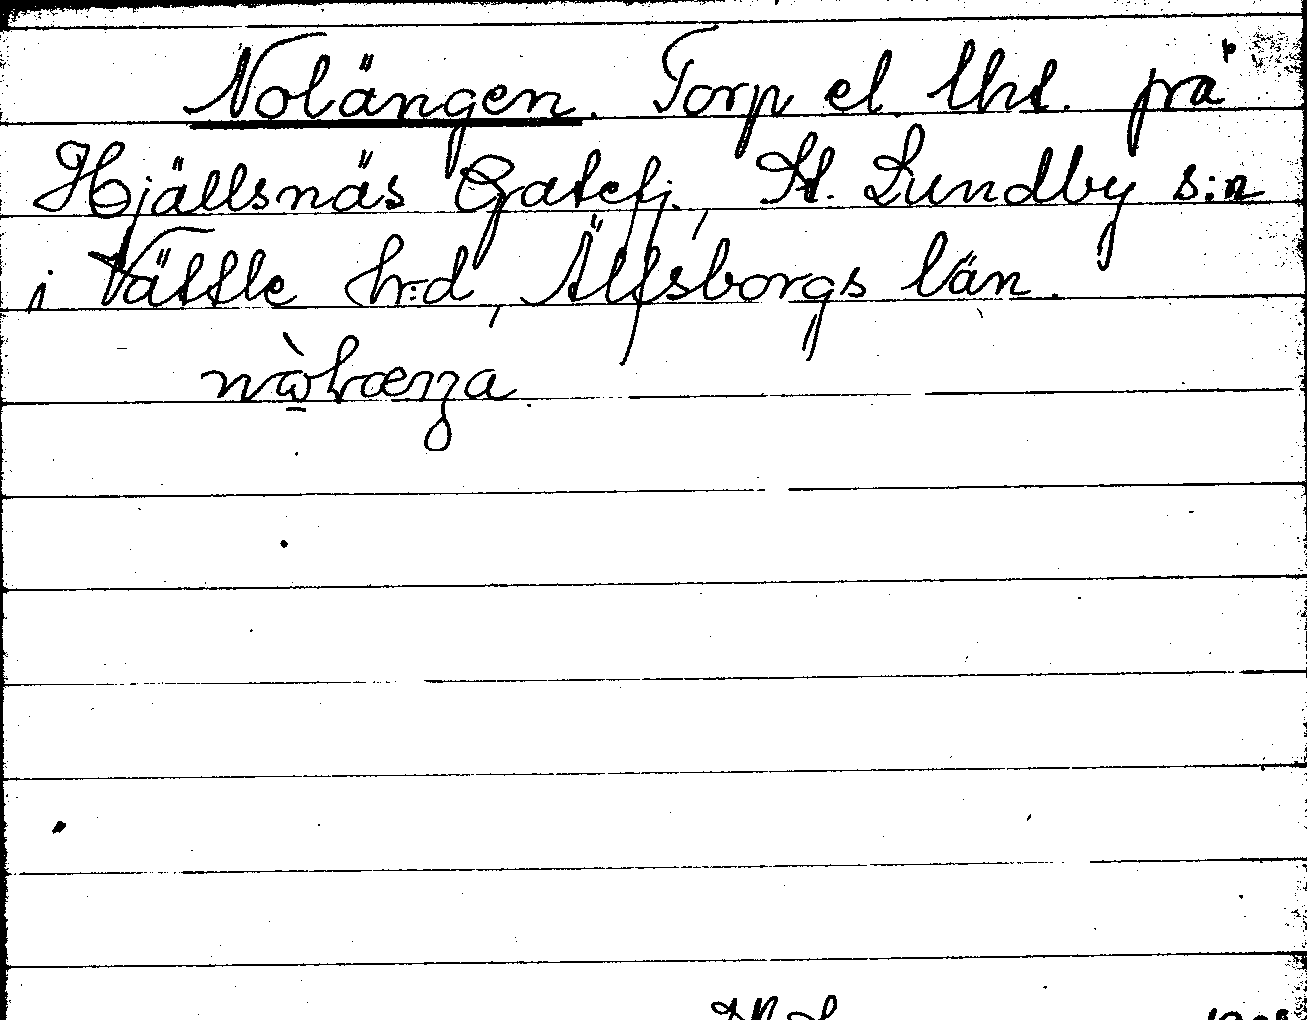 Nolängen. Torp el. lht. på
Hjällsnäs Gatefj., St. Lundby s:n
i Vättle hrd, Älfsborgs län.